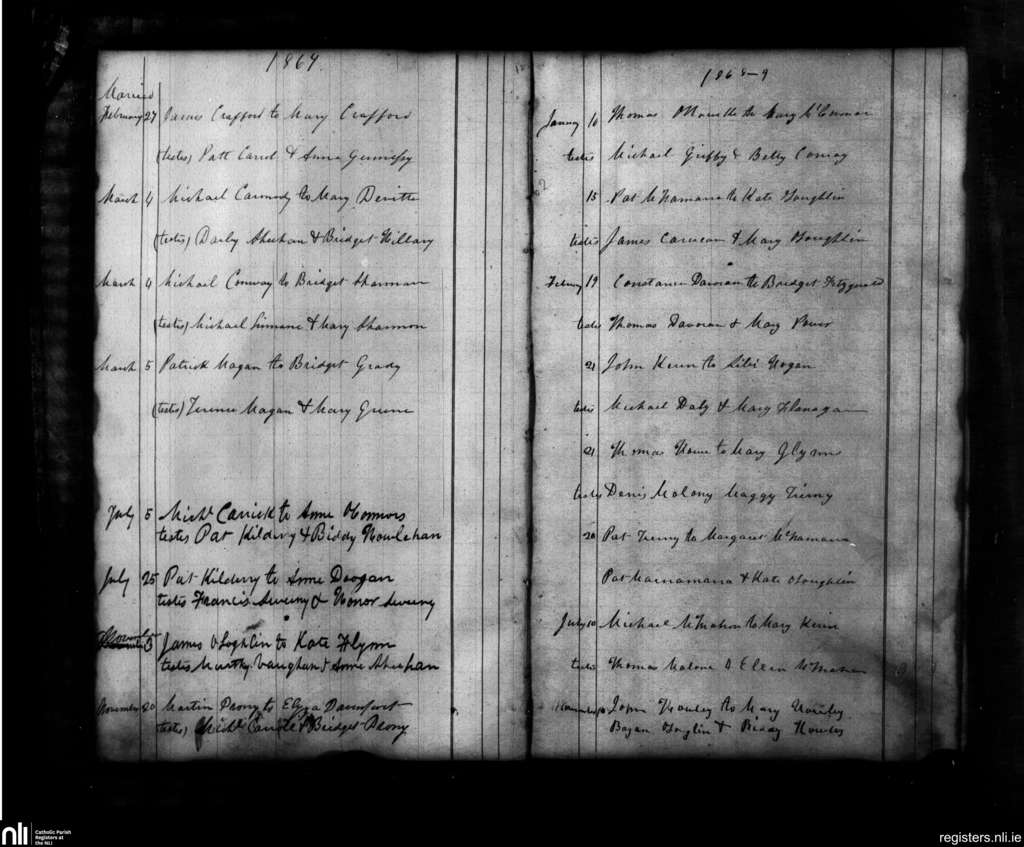 1869
Married
February 27 James Crafford to Mary Crafford
(testes) Patt Carrol & Anne
March 4 Michael Carmody to Mary Devitte
(testes) Darby Sheehan & Bridget Hillary
March 4 Michael Conway to Bridget Shannon
(testes) Michael Linnane & Mary Shannon
March 5 Patrick Magan to Bridget Grady
(testes) Terence Magan & Mary Greene
July 5 Michl Carrick to Anne O'Connors
testes Pat Kilderry & Biddy Nowlehan
July 25 Pat Kilderry to Anne Doogan
testes Francis Sweeny & Honor Sweeny
3 James O'Loghlin to Kate Flynn
testes Vaughan & Anne Sheehan
November 20 Martin to Eliza Davenport
(testes) Michl & Bridget
1868-9
January 10 Thomas to Mary
testes Michael & Betty Conway
15 Pat McNamara to Kate Loughlin
testes James & Mary Loughlin
February 19 Constance Davoran to Bridget Fitzgerald
testes Thomas Davoran & Mary Power
21 John Kerin to Hogan
testes Michael Daly & Mary Flanagan
21 Thomas to Mary Glynn
testes Denis Molony Maggy Tierny
20 Pat Tierny to Margaret McNamara
Pat Macnamara & Kate O'Loughlin
July 10 Michael McMahon to Mary Kerin
testes Thomas Malone & Ellen McMahon
John to Mary
& Biddy
nli
Catholic Parish
Registers at
the NLI
registers.nli.ie